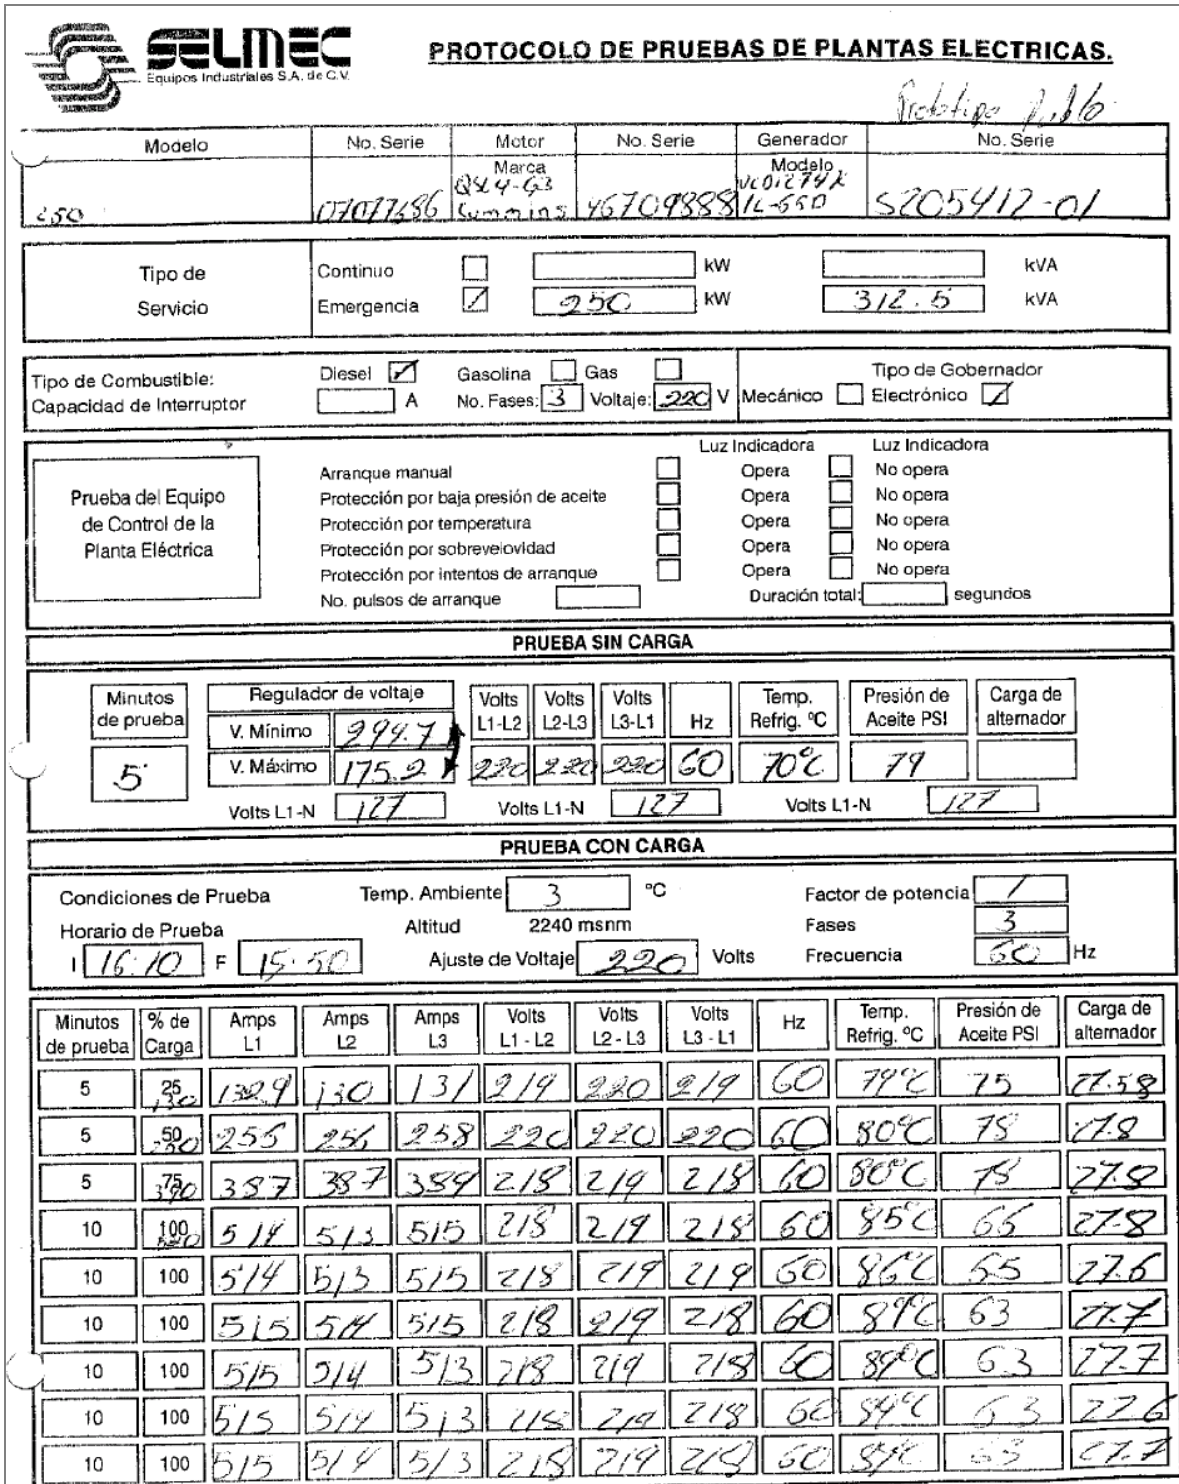 SELMEC
Equipos Industriales S.A. de C.V.
PROTOCOLO DE PRUEBAS DE PLANTAS ELECTRICAS.
Prototipo
Modelo No. Serie Motor No. Serie Generador No. Serie
Marca Modelo
250 07077686 Cummins 46709888 S205412-01
Tipo de Servicio
Continuo kW kVA
Emergencia 250 kW 312.5 kVA
Tipo de Combustible: Diesel Gasolina Gas Tipo de Gobernador
Capacidad de Interruptor A No. Fases: 3 Voltaje: 220 V Mecánico Electrónico
Luz Indicadora Luz Indicadora
Prueba del Equipo de Control de la Planta Eléctrica
Arranque manual Opera No opera
Protección por baja presión de aceite Opera No opera
Protección por temperatura Opera No opera
Protección por sobrevelovidad Opera No opera
Protección por intentos de arranque Opera No opera
No. pulsos de arranque Duración total: segundos
PRUEBA SIN CARGA
Minutos de prueba Regulador de voltaje Volts L1-L2 Volts L2-L3 Volts L3-L1 Hz Temp. Refrig. ºC Presión de Aceite PSI Carga de alternador
V. Mínimo 294.7
5 V. Máximo 175.2 220 220 220 60 70°C 79
Volts L1-N 127 Volts L1-N 127 Volts L1-N 127
PRUEBA CON CARGA
Condiciones de Prueba Temp. Ambiente 3 ºC Factor de potencia 1
Horario de Prueba Altitud 2240 msnm Fases 3
I 16:10 F 15:50 Ajuste de Voltaje 220 Volts Frecuencia 60 Hz
Minutos de prueba % de Carga Amps L1 Amps L2 Amps L3 Volts L1 - L2 Volts L2 - L3 Volts L3 - L1 Hz Temp. Refrig. ºC Presión de Aceite PSI Carga de alternador
5 25 130 132.9 130 131 219 220 219 60 79°C 75 27.58
5 50 256 256 258 220 220 220 60 80°C 78 27.8
5 75 390 387 387 389 218 219 218 60 80°C 78 27.8
10 100 514 513 515 218 219 218 60 85°C 66 27.8
10 100 514 513 515 218 219 219 60 86°C 65 27.6
10 100 515 514 515 218 219 218 60 89°C 63 27.7
10 100 515 514 513 218 219 218 60 89°C 63 27.7
10 100 515 514 513 218 219 218 60 84°C 63 27.6
10 100 515 514 513 218 219 218 60 63 27.7